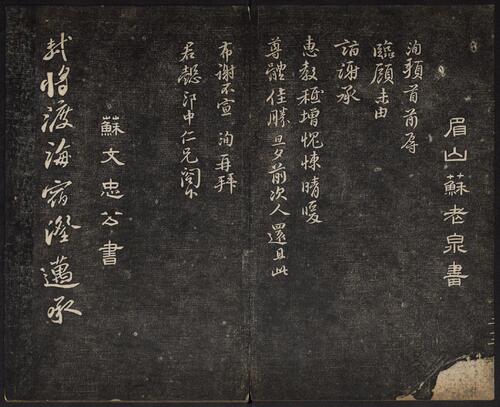 眉山蘇老泉書
洵頓首前辱
臨顧未由
詣謝承
惠教祗增愧悚晴暖
尊體佳勝旦夕前次人還且此
布謝不宣 洵再拜
君懿郎中仁兄閣下
蘇文忠公書
軾將渡海宿澄邁承